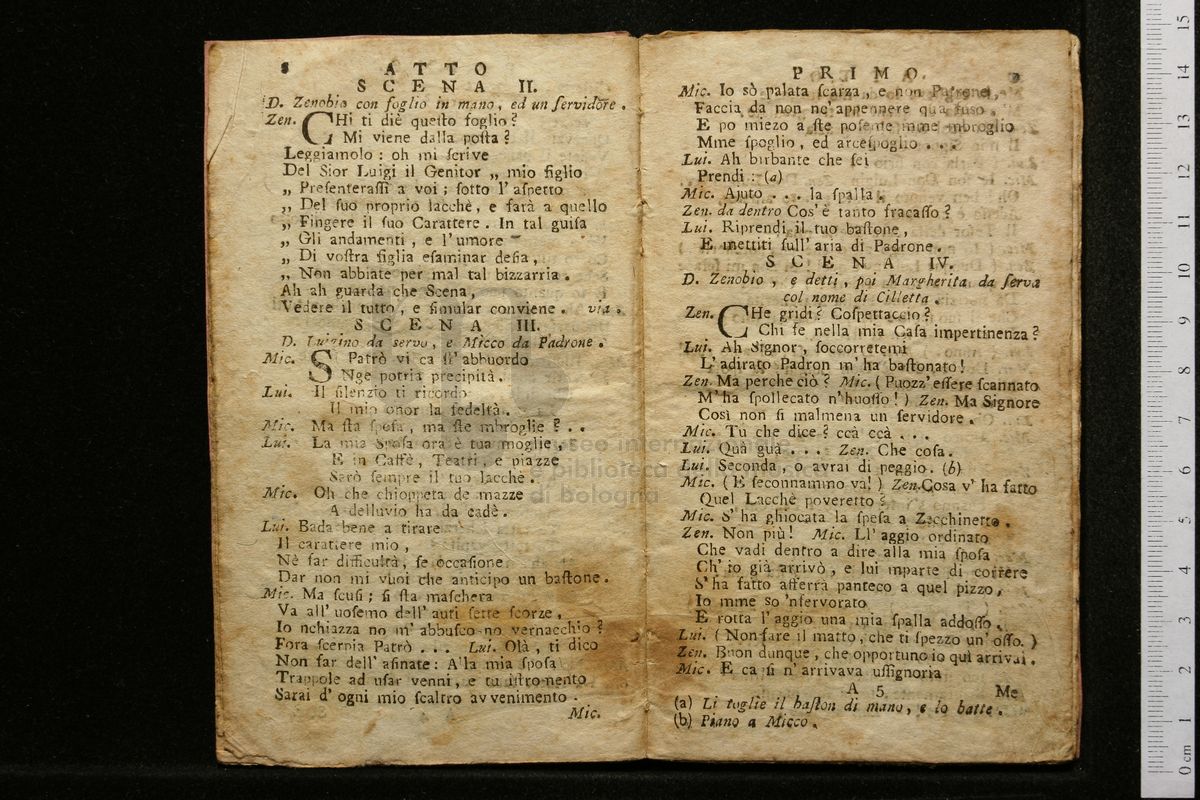 8 ATTO
SCENA II.
D. Zenobio con foglio in mano, ed un ſervidore.
Zen. CHi ti diè queſto foglio?
Mi viene dalla poſta?
Leggiamolo: oh mi ſcrive
Del Sior Luigi il Genitor „ mio figlio
„ Preſenteraſſi a voi; ſotto l' aſpetto
„ Del ſuo proprio lacchè, e farà a quello
„ Fingere il ſuo Carattere. In tal guiſa
„ Gli andamenti, e l'umore
„ Di voſtra figlia eſaminar deſia,
„ Non abbiate per mal tal bizzarria.
Ah ah guarda che Scena,
Vedere il tutto, e ſimular conviene. via.
SCENA III.
D. Luigino da servo, e Micco da Padrone.
Mic. S Patrò vi ca ſi' abbuordo
Nge potria precipità.
Lui. Il ſilenzio ti ricordo
Il mio onor la fedeltà.
Mic. Ma ſta ſpoſa, ma ſte mbroglie?..
Lui. La mia Spoſa ora è tua moglie,
E in Caffè, Teatri, e piazze
Sarò ſempre il tuo lacchè.
Mic. Oh che chioppeta de mazze
A delluvio ha da cadè.
Lui. Bada bene a tirare
Il carattere mio,
Nè far difficultà, ſe occaſione
Dar non mi vuoi che anticipo un baſtone.
Mic. Ma ſcuſi; ſi ſta maſchera
Va all' uoſemo dell' auti ſette ſcorze,
Io nchiazza no m' abbuſco no vernacchio?
Fora ſcernia Patrò... Lui. Olà, ti dico
Non far dell' aſinate: Alla mia ſpoſa
Trappole ad uſar venni, e tu iſtromento
Sarai d' ogni mio ſcaltro avvenimento.
Mic.
PRIMO. 9
Mic. Io sò palata ſcarza, e non Patrone,
Faccia da non nc'appennere qua fuſo.
E po miezo a ſte poſente mme mbroglio
Mme ſpoglio, ed arceſpoglio...
Lui. Ah birbante che ſei
Prendi: (a)
Mic. Ajuto... la ſpalla.
Zen. da dentro Cos'è tanto fracaſſo?
Lui. Riprendi il tuo baſtone,
E mettiti ſull' aria di Padrone.
SCENA IV.
D. Zenobio, e detti, poi Margherita da ſerva
col nome di Cilletta.
Zen. CHe gridi? Coſpettaccio?
Chi fe nella mia Caſa impertinenza?
Lui. Ah Signor, ſoccorretemi
L' adirato Padron m' ha baſtonato!
Zen. Ma perche ciò? Mic. (Puozz' eſſere ſcannato
M'ha ſpollecato n'huoſſo!) Zen. Ma Signore
Così non ſi malmena un ſervidore.
Mic. Tu che dice? ccà ccà...
Lui. Quà quà... Zen. Che coſa.
Lui. Seconda, o avrai di peggio. (b)
Mic. (E ſeconnammo va!) Zen. Coſa v' ha fatto
Quel Lacchè poveretto?
Mic. S' ha ghiocata la ſpeſa a Zecchinetto.
Zen. Non più! Mic. Ll' aggio ordinato
Che vadi dentro a dire alla mia ſpoſa
Ch' io già arrivò, e lui mparte di correre
S'ha fatto afferrà panteco a quel pizzo,
Io mme so 'nfervorato
E rotta l'aggio una mia ſpalla addoſſo.
Lui. (Non fare il matto, che ti ſpezzo un' oſſo.)
Zen. Buon dunque, che opportuno io quì arrivai.
Mic. E ca ſi n' arrivava uſſignoria
A 5 Me
(a) Li toglie il baſton di mano, e lo batte.
(b) Piano a Micco.
museo internazionale
e biblioteca della musica
di bologna
0 cm 1 2 3 4 5 6 7 8 9 10 11 12 13 14 15